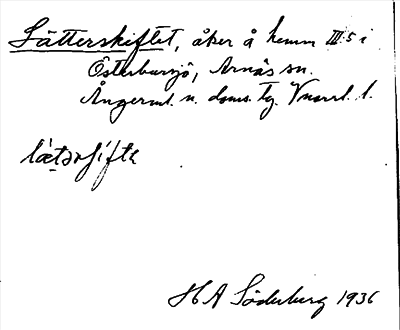 Lätterskiftet, åker å hemm III:5 i
Österbursjö, Arnäs sn.
Ångerml. n. doms. tg. Vnorrl. l.
lætərʃifte
H A Söderberg 1936